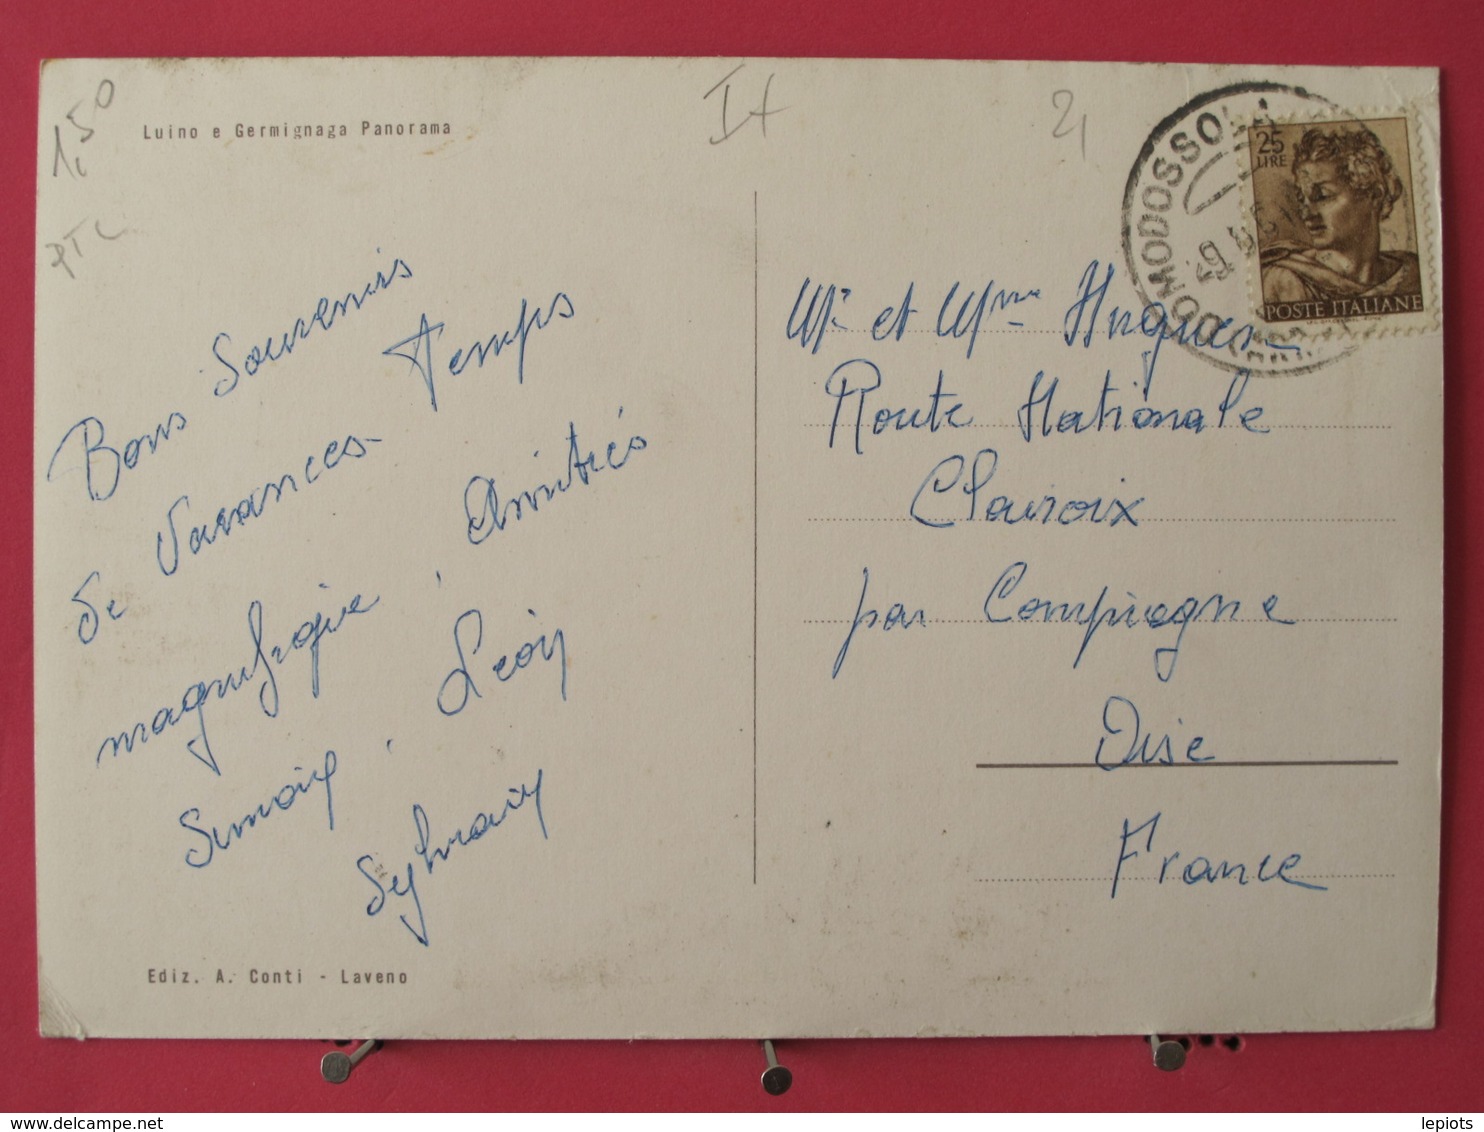 1,50
PTL
Luino e Germignaga Panorama
It
21
DOMODOSSOLA
25
LIRE
POSTE ITALIANE
Bons Souvenirs
de Vacances - Temps
magnifique, Amitiés
Simoy, Leoy
Sylvaiy
Mr et Mme Hugues
Route Nationale
Clairoix
par Compiegne
Oise
France
Ediz. A. Conti - Laveno
http://www.delcampe.net
lepiots